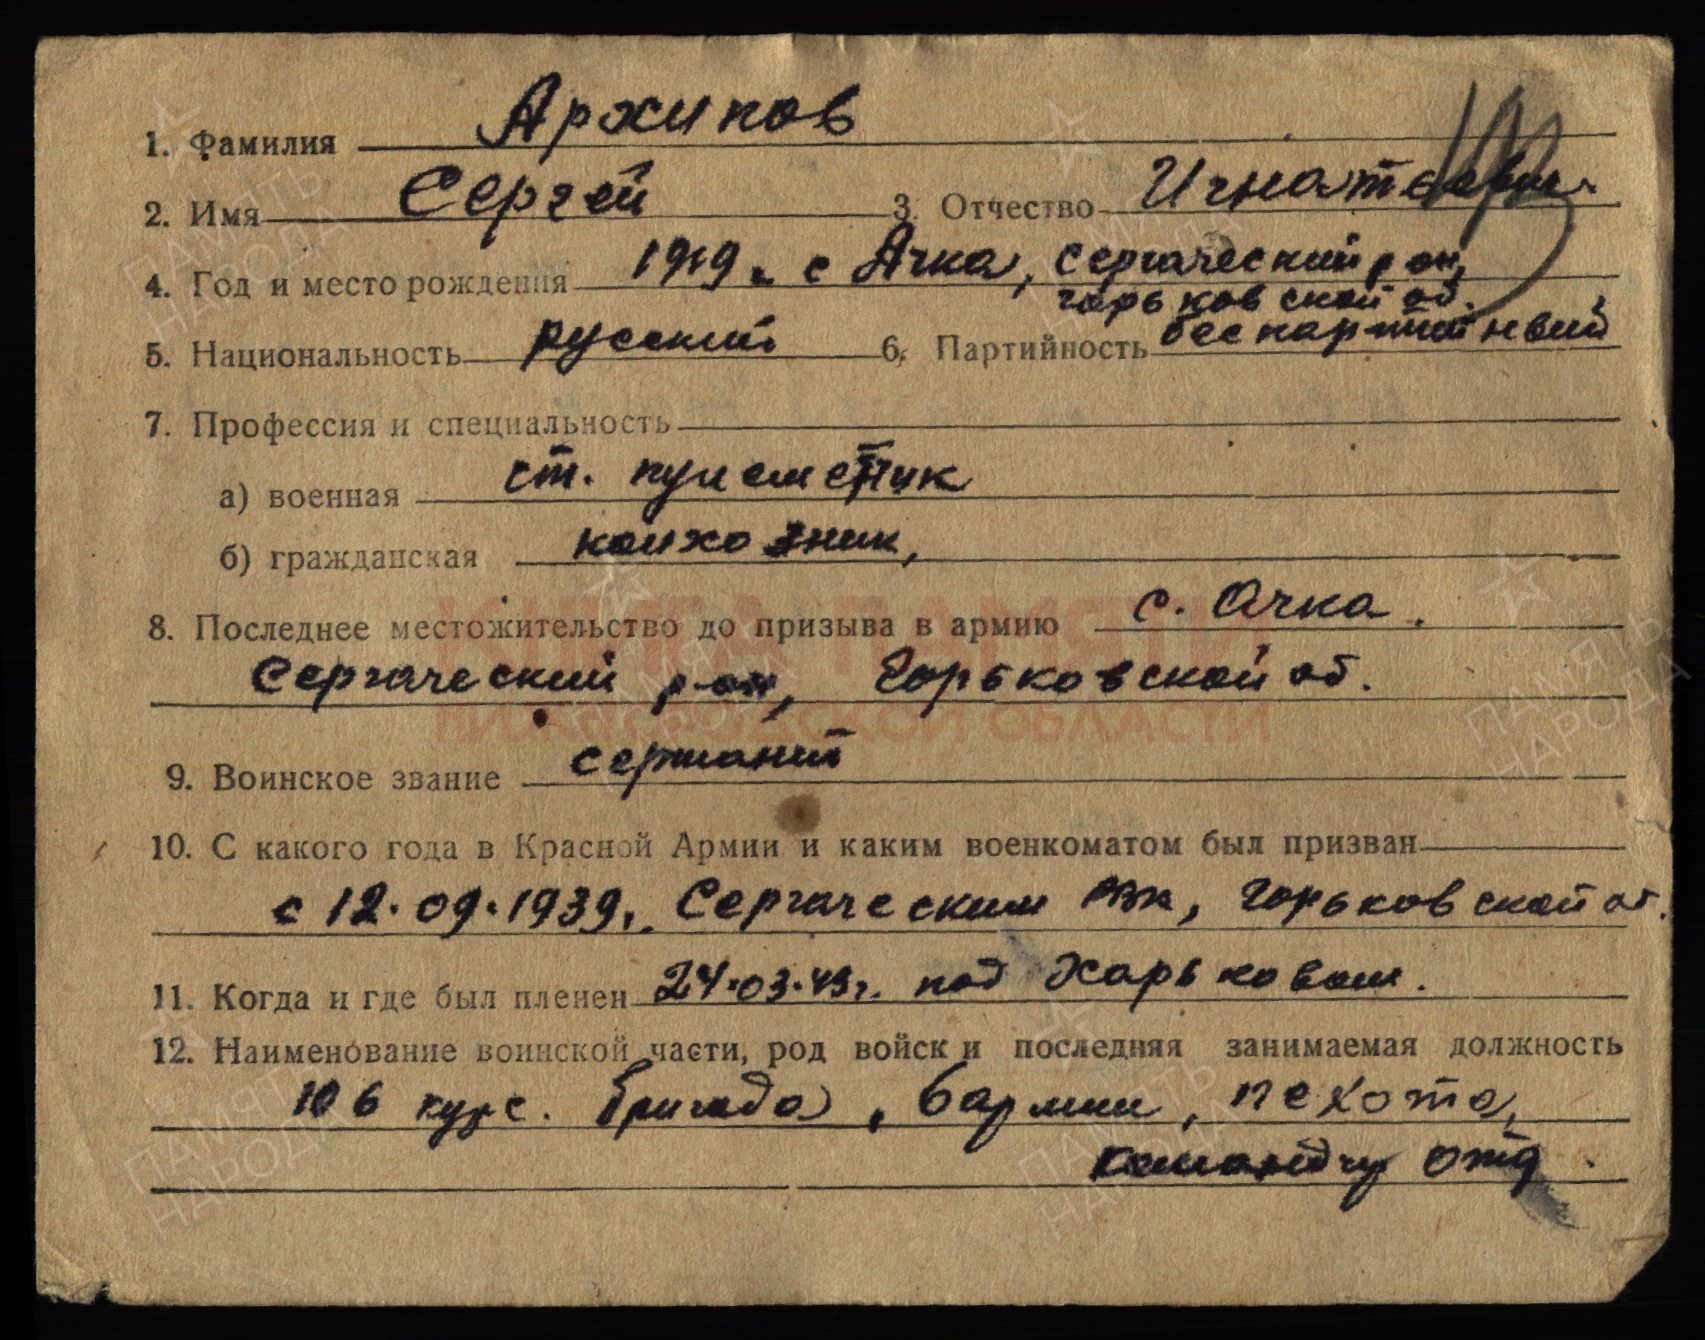 1. Фамилия Архипов
2. Имя Сергей 3. Отчество Игнатьевич
4. Год и место рождения 1919 г. с Ачка, Сергаческий рон,
горьковской об.
5. Национальность русский. 6. Партийность беспартийный
7. Профессия и специальность
а) военная ст. пулеметчик
б) гражданская колхозник,
8. Последнее местожительство до призыва в армию с. Ачка.
Сергаческий р-он, Горьковской об.
9. Воинское звание сержант
10. С какого года в Красной Армии и каким военкоматом был призван
с 12.09.1939г. Сергаческим РВК, Горьковской об.
11. Когда и где был пленен 24.03.43г. под Харьковом.
12. Наименование воинской части, род войск и последняя занимаемая должность
106 бригада, 6 армии, пехота,
отд.
КНИГА ПАМЯТИ
НИЖЕГОРОДСКОЙ ОБЛАСТИ
ПАМЯТЬ НАРОДА